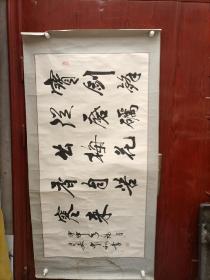 寶劍鋒
從磨礪
出梅花
香自苦
寒來